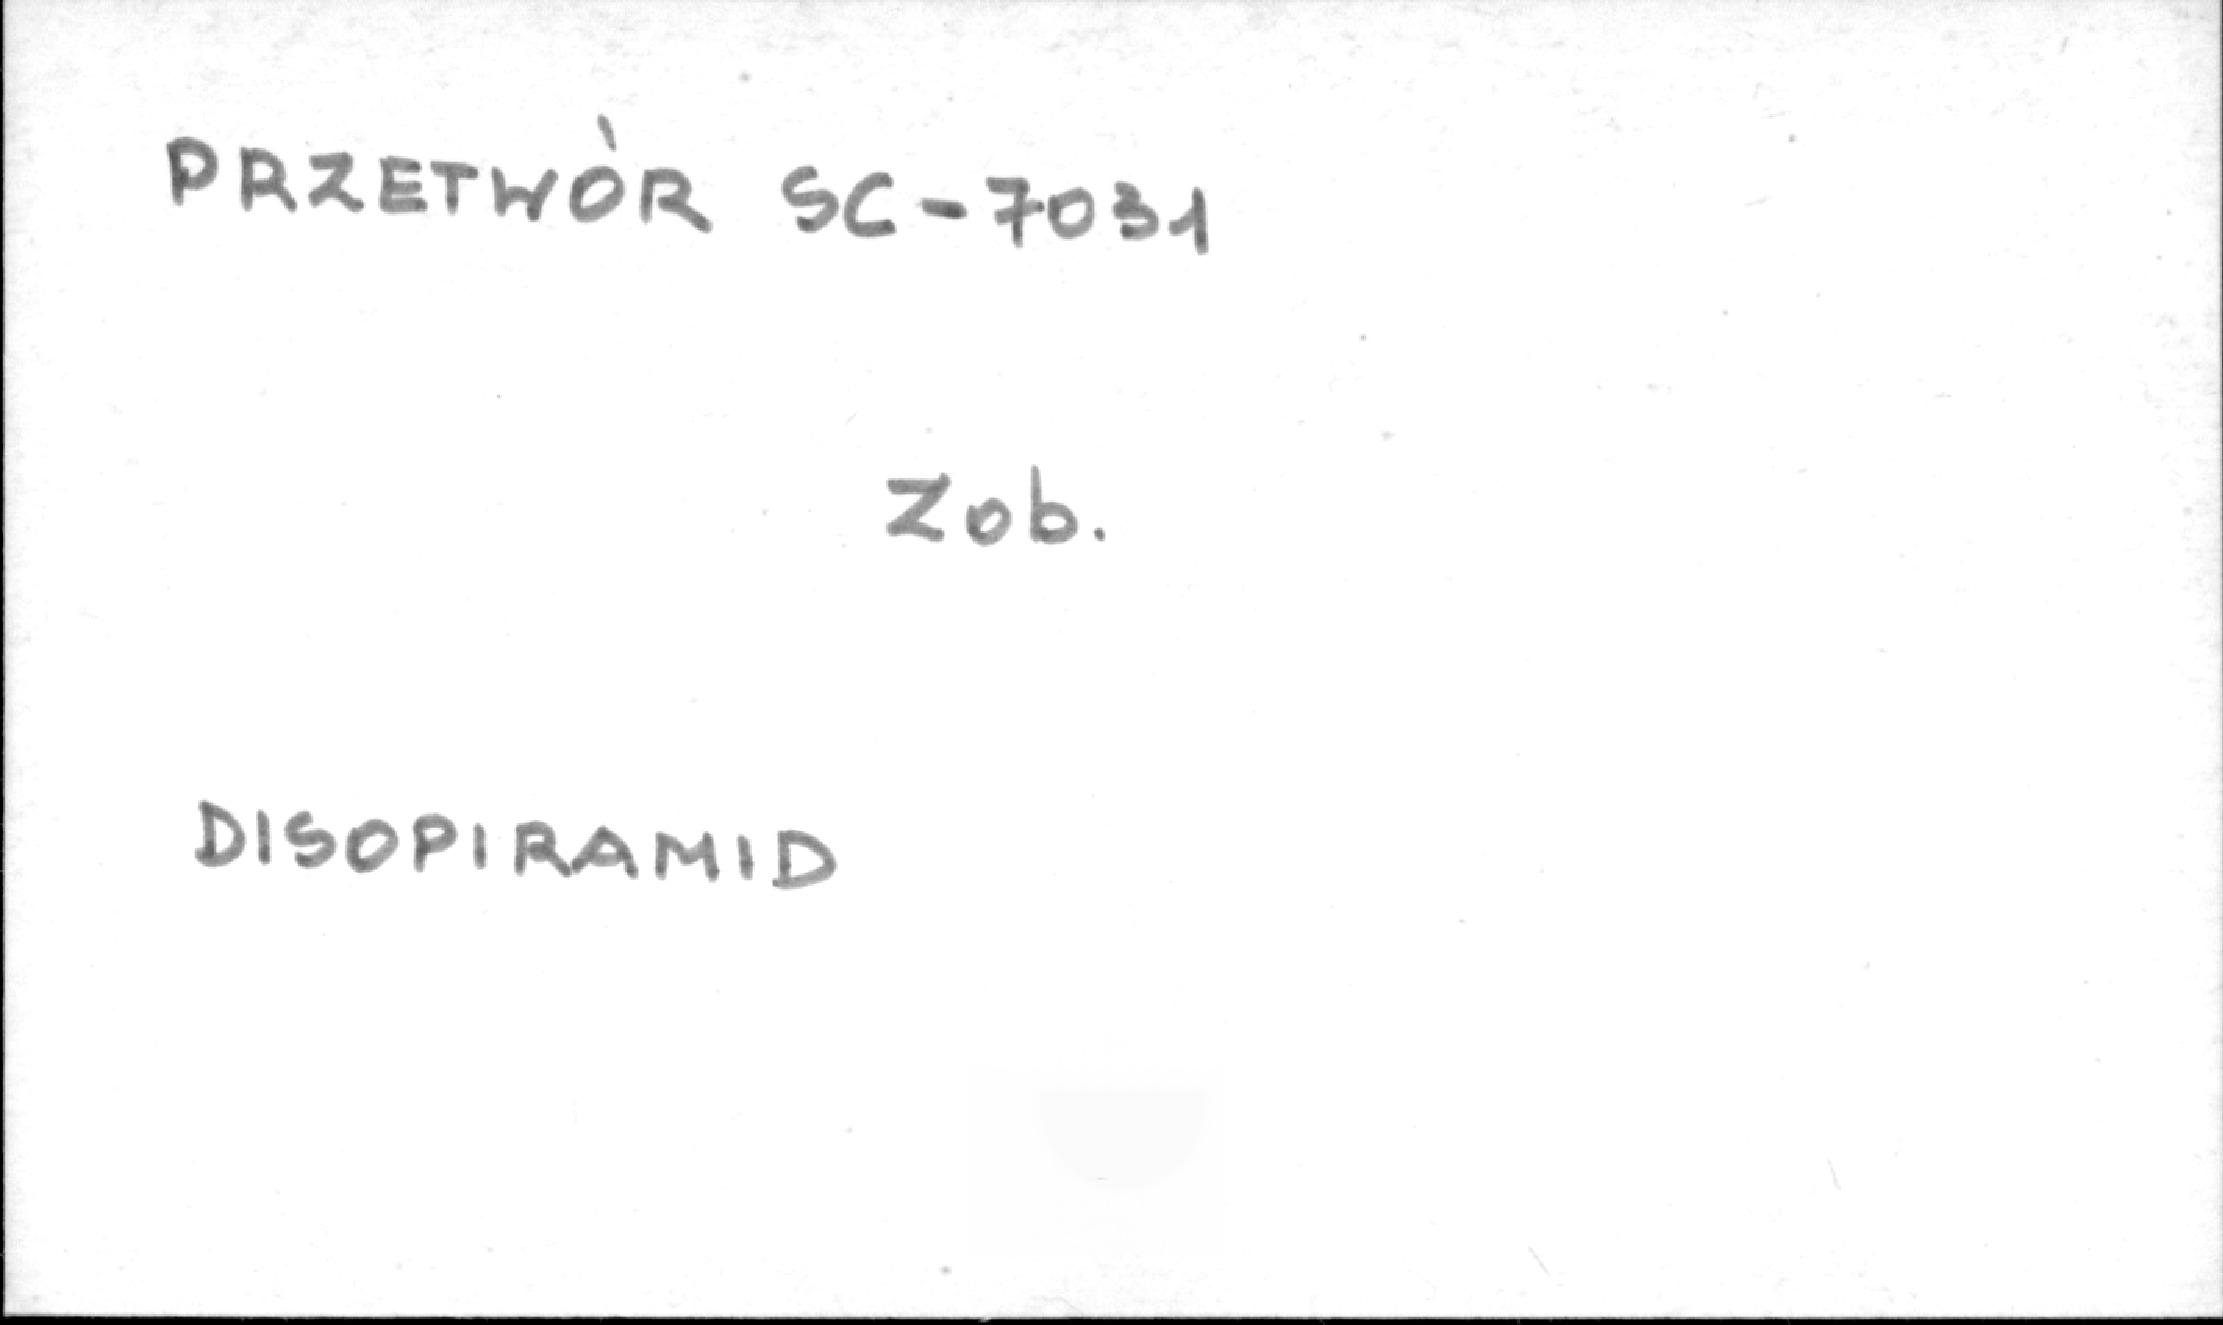 PRZETWÓR SC-7031
Zob.
DISOPIRAMID